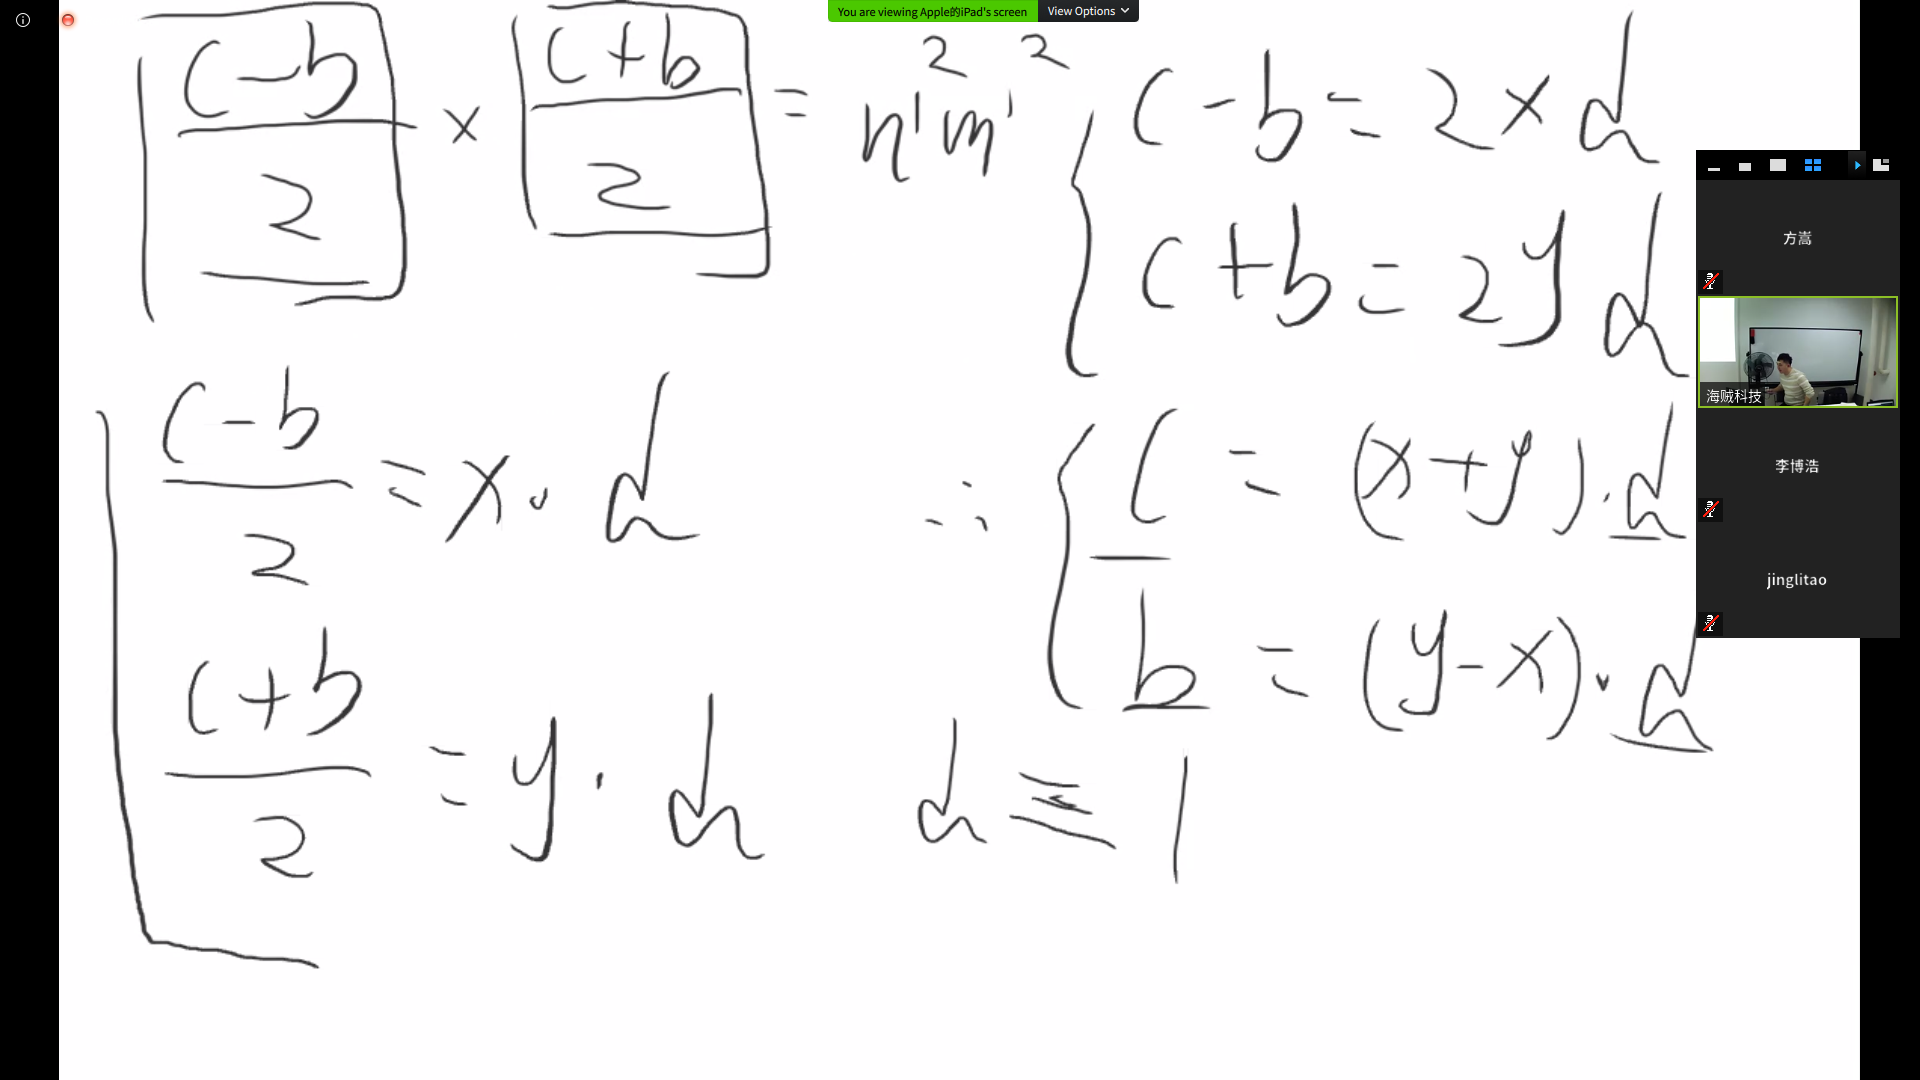 You are viewing Apple的iPad's screen
View Options
(c-b)/2 × (c+b)/2 = n'²m'²
c-b=2xd
c+b=2yd
(c-b)/2 = x·d
(c+b)/2 = y·d
∴ c = (x+y)·d
b = (y-x)·d
d ≡ 1
方嵩
海贼科技
李博浩
jinglitao